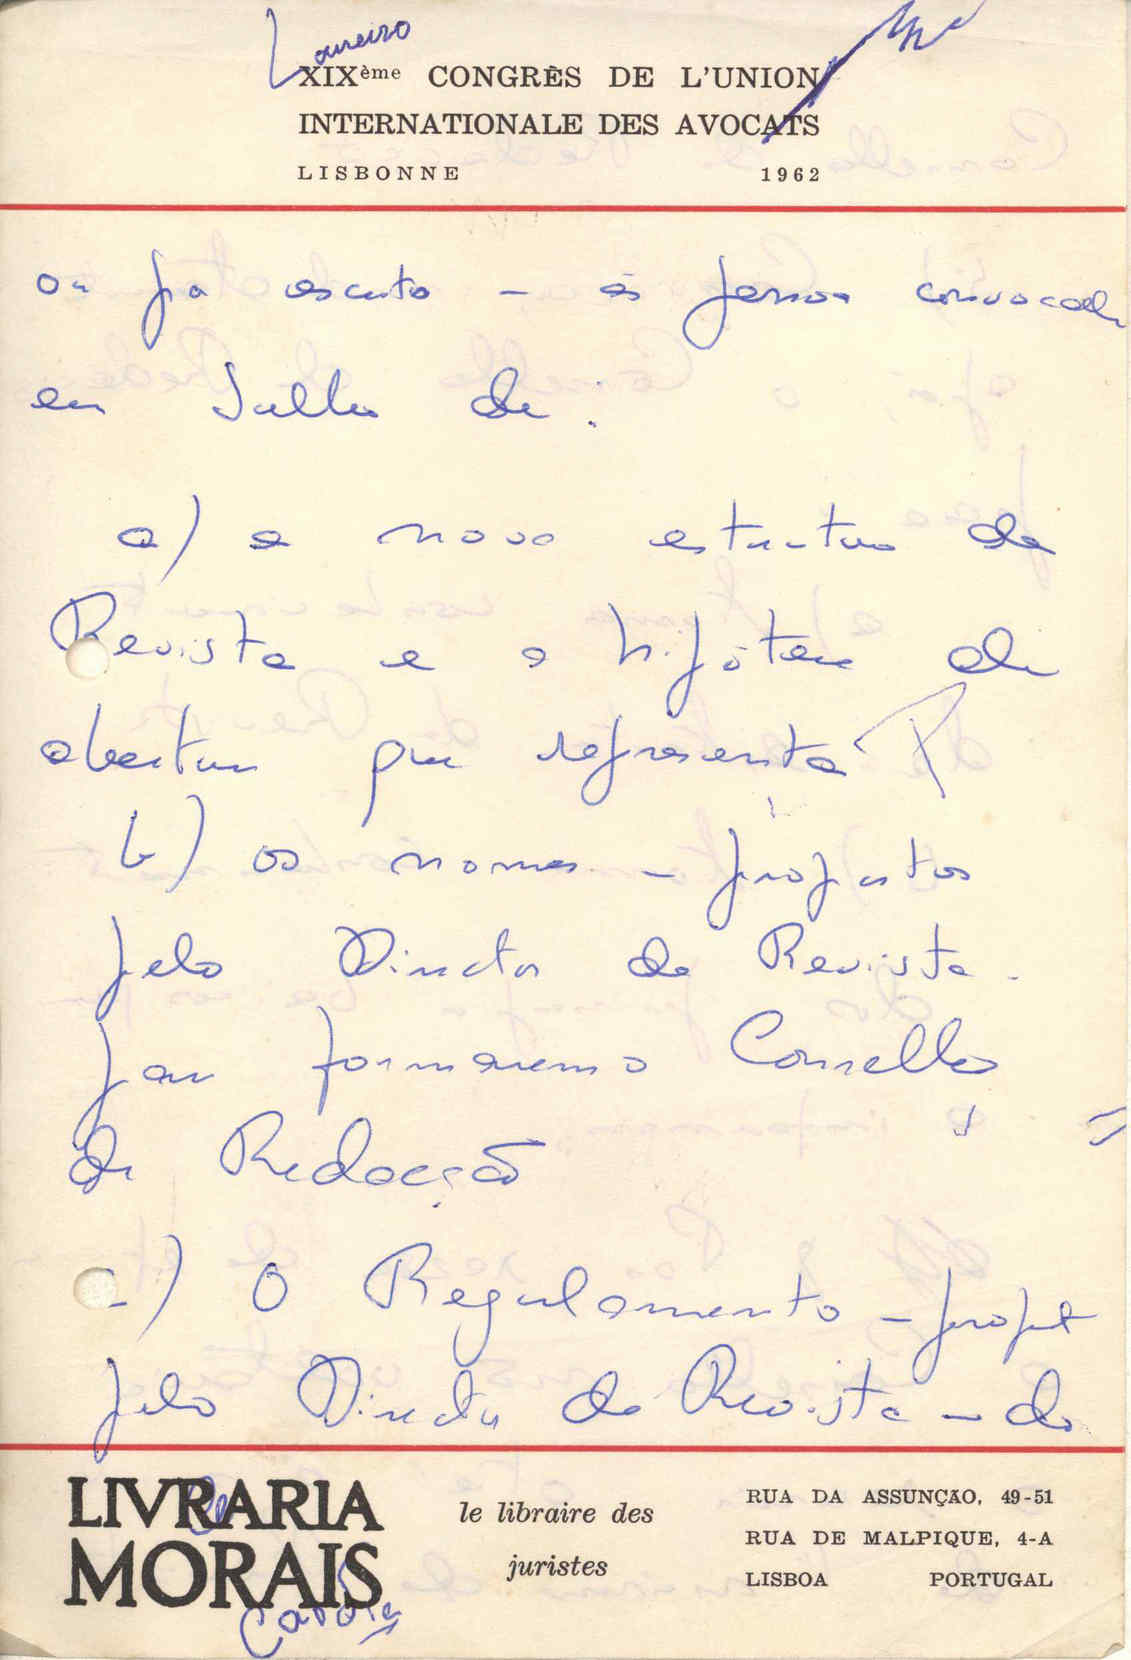 Loureiro
XIXème CONGRÈS DE L'UNION
INTERNATIONALE DES AVOCATS
LISBONNE 1962
ou por escrito - às pessoas convocadas
em Julho de:
a) a nova estrutura da
Revista e a hipótese de
abertura que representa
b) os nomes - propostos
pelo Director da Revista -
para formarem o Conselho
de Redacção
c) O Regulamento - proposto
pelo Director da Revista - do
LIVRARIA MORAIS
le libraire des juristes
RUA DA ASSUNÇÃO, 49-51
RUA DE MALPIQUE, 4-A
LISBOA PORTUGAL